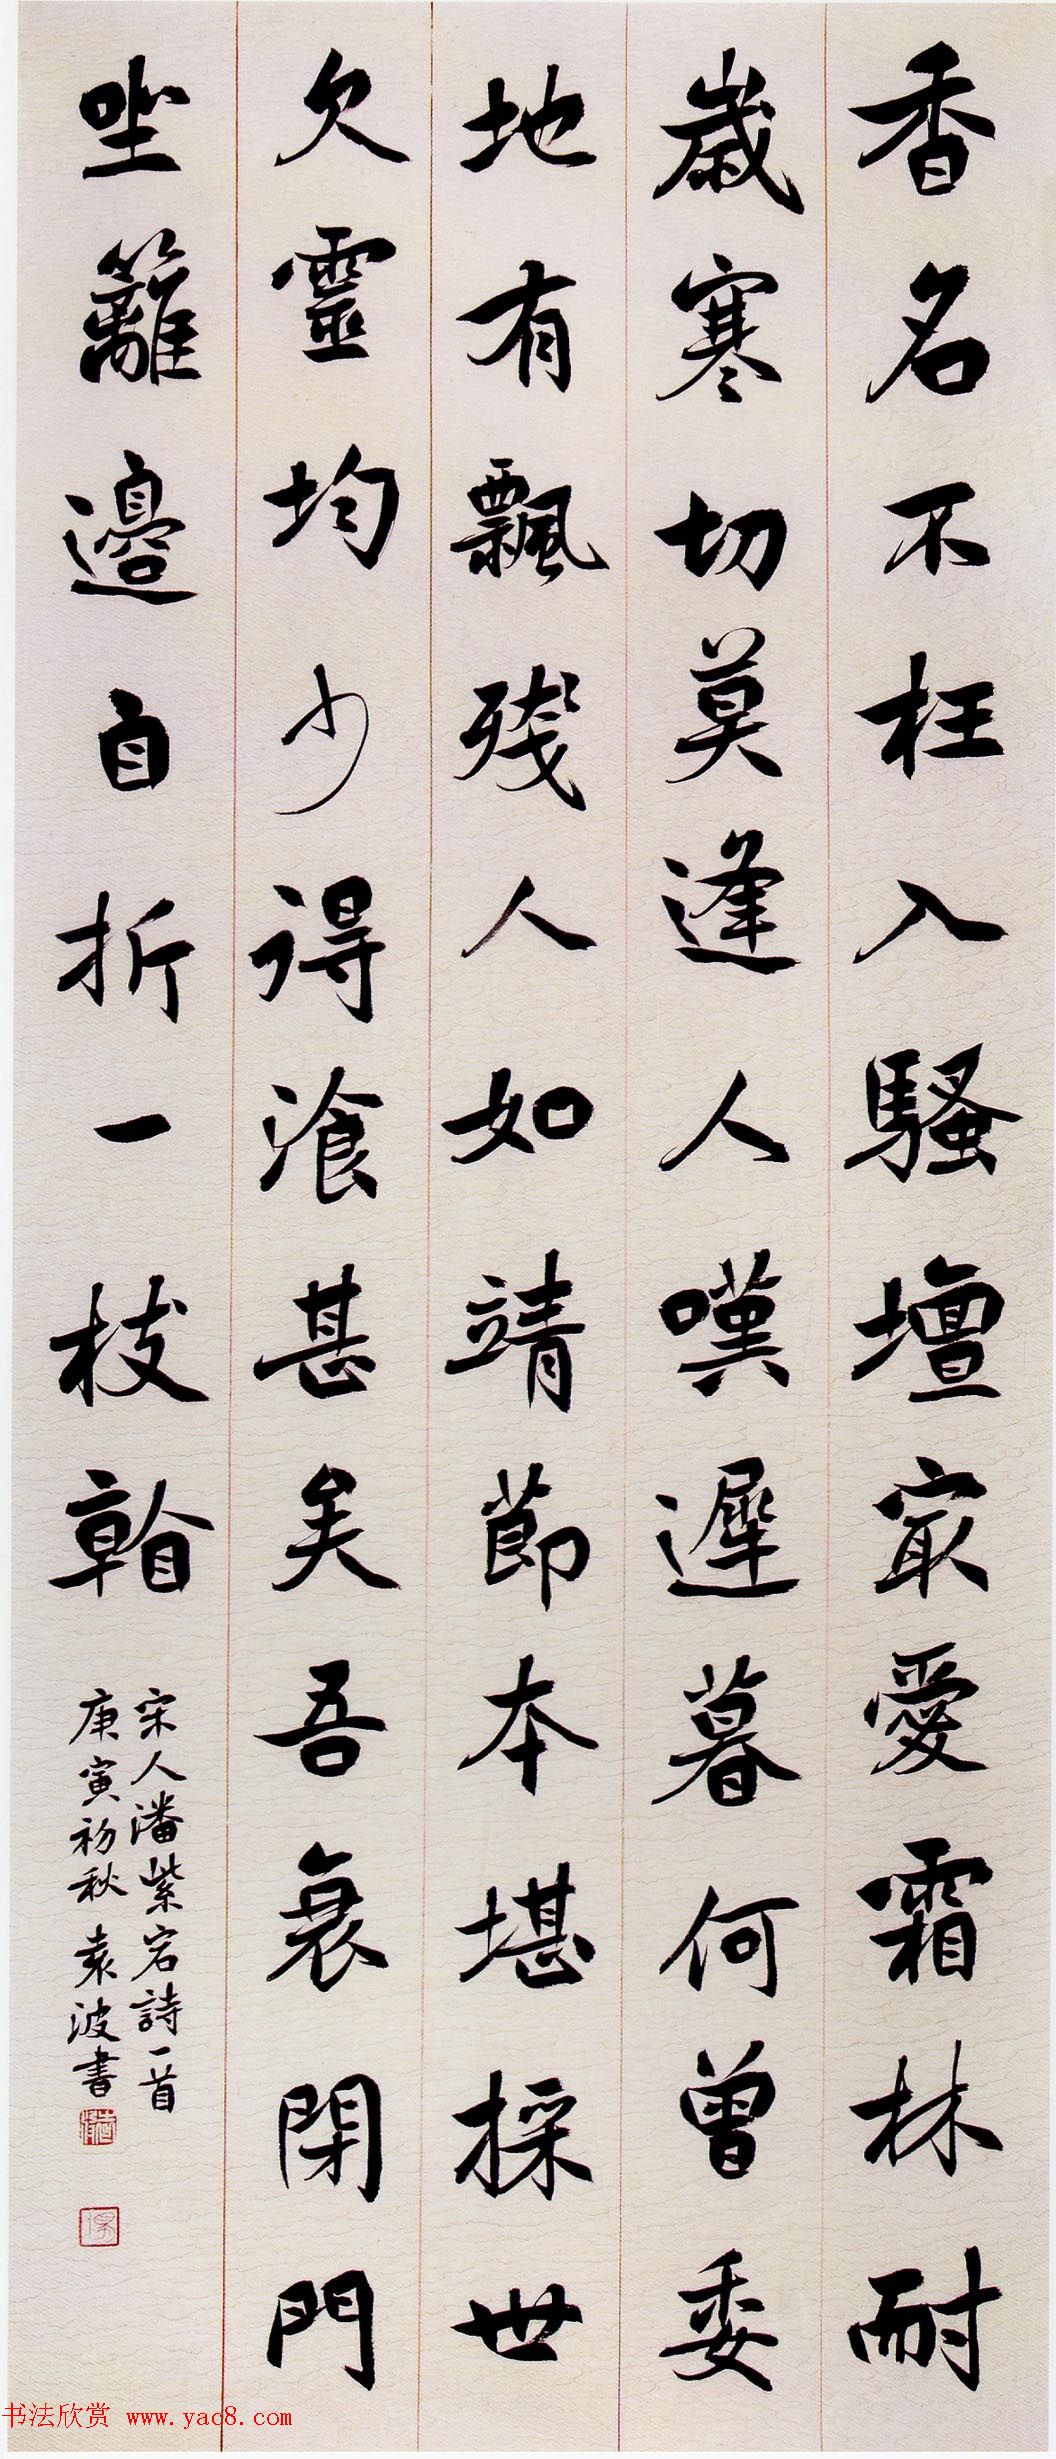 香名不枉入騷壇㝡愛霜林耐
歲寒切莫逢人嘆遲暮何曾委
地有飄殘人如靖節本堪採世
欠靈均少得湌甚矣吾衰閉門
坐籬邊自折一枝看
宋人潘紫岩詩一首
庚寅初秋袁波書
书法欣赏 www.yac8.com